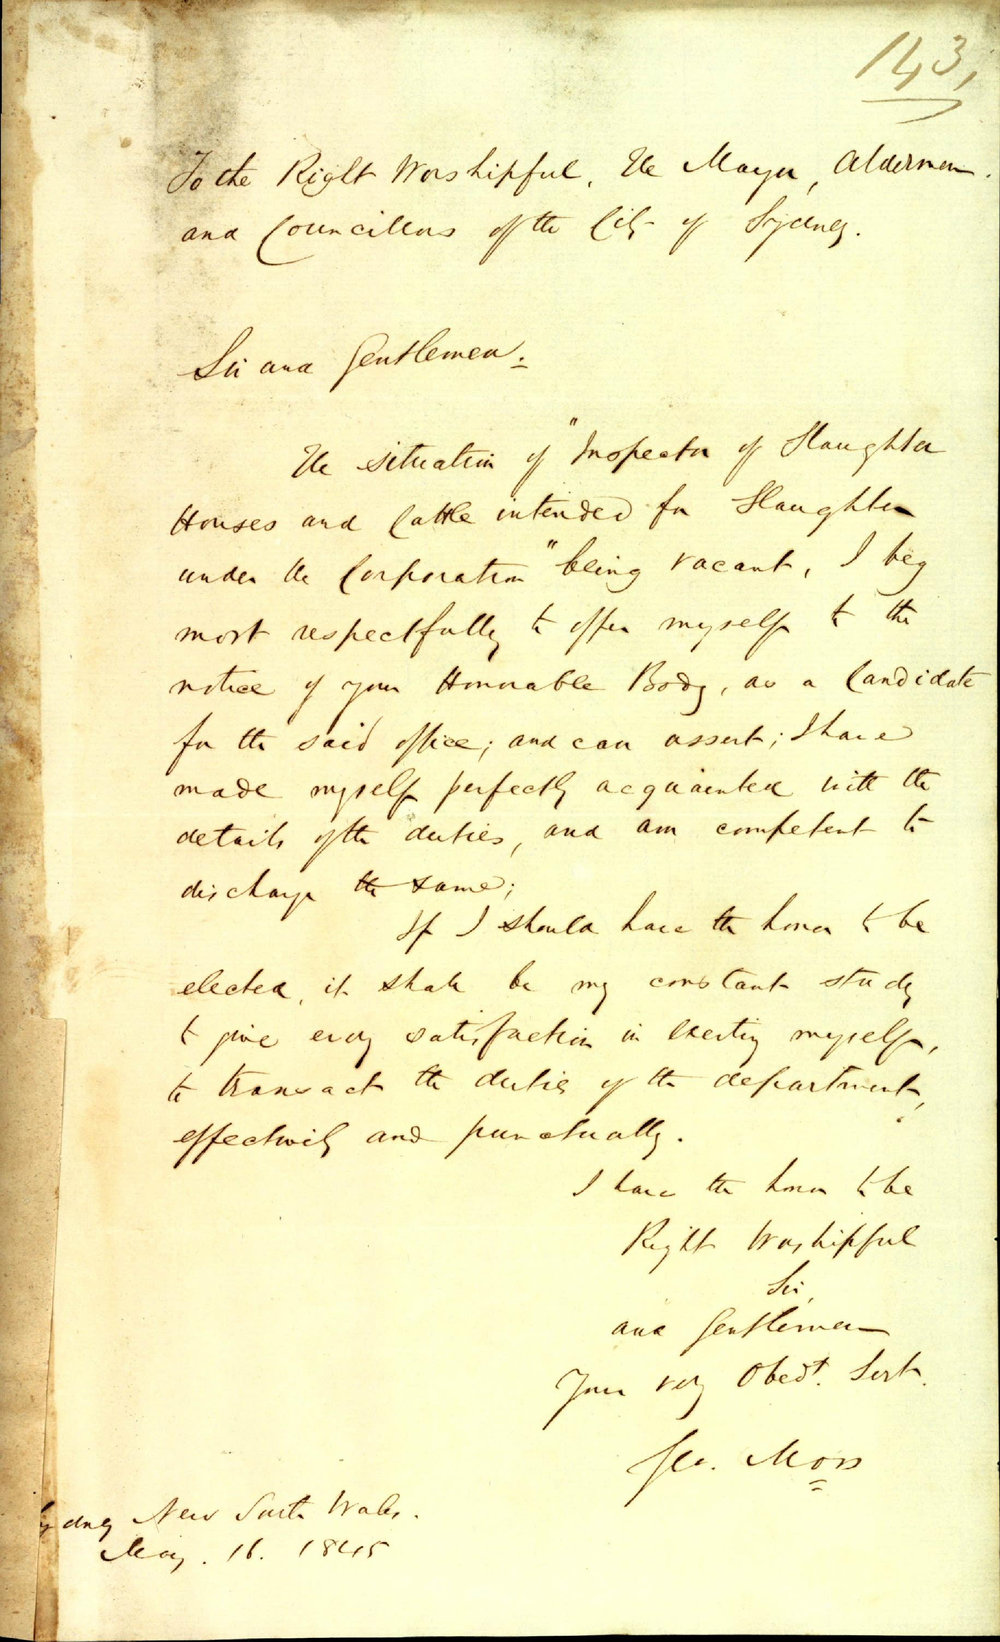 143,
To the Right Worshipful, The Mayor, Aldermen.
and Councillors of the City of Sydney.
Sir and Gentlemen.
The situation of "Inspector of Slaughter
Houses and Cattle intended for Slaughter
under the Corporation" being vacant, I beg
most respectfully to offer myself to the
notice of your Honourable Body, as a Candidate
for the said office; and can assert; I have
made myself perfectly acquainted with the
details of the duties, and am competent to
discharge the same;
If I should have the honor to be
elected, it shall be my constant study
to give every satisfaction in exerting myself,
to transact the duties of the department,
effectively and punctually.
I have the honor to be
Right Worshipful
Sir,
and Gentlemen
Your very Obedt. Servt.
Geo. Moss
Sydney New South Wales.
May. 16. 1845